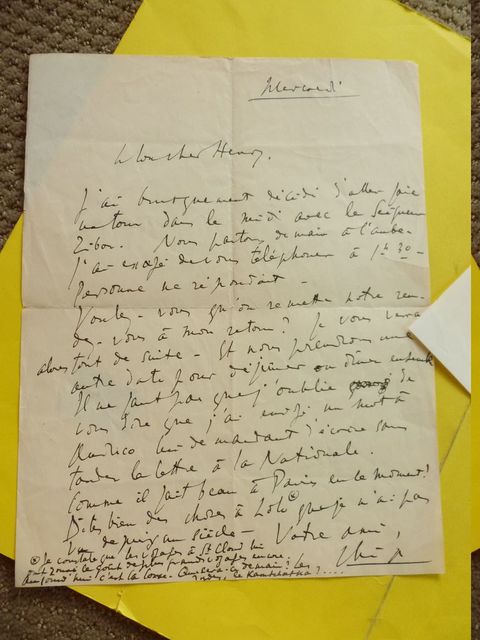 Mercredi
Mon cher Henry,
J'ai brusquement décidé d'aller faire
un tour dans le midi avec le Seigneur
Zibor. Nous partons demain à l'aube.
J'ai essayé de vous téléphoner à 1h 30 -
Personne ne répondait -
Voulez-vous qu'on remette notre ren-
dez-vous à mon retour? Je vous verrai
alors tout de suite - Et nous prendrons une
autre date pour déjeuner ou dîner ensemble
Il ne faut pas que j'oublie de
vous dire que j'ai envoyé un mot à
lui demandant d'écrire sans
tarder la lettre à la Nationale.
Comme il fait beau à Paris en ce moment!
Dites bien des choses à Lolo ⊗ que je n'ai pas
vu depuis un siècle - Votre ami,
⊗ Je constate que les à St Cloud lui
ont donné le goût de plus grands encore.
Aujourd'hui c'est la Corse. Que sera-ce demain? Les
Indes, le Kamtchatka? ....